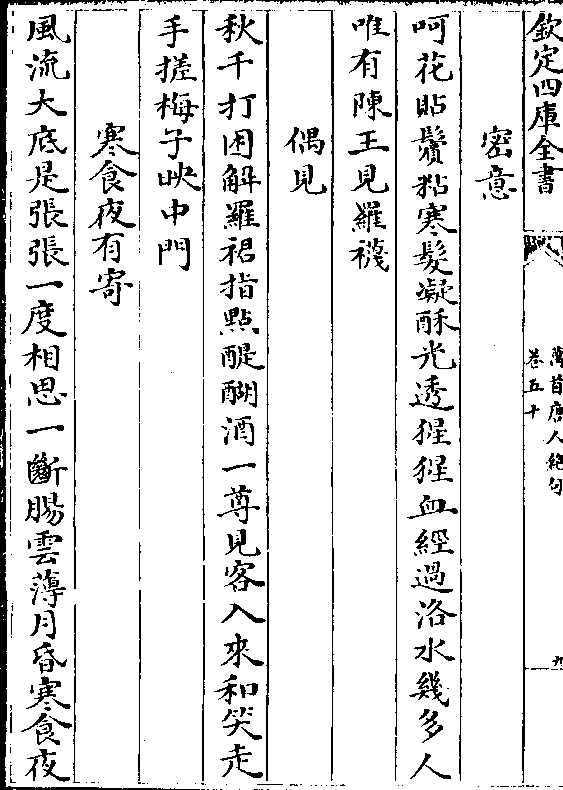 欽定四庫全書
萬首唐人絶句
卷五十
九
密意
呵花貼鬢黏寒髮凝酥光透猩猩血經過洛水幾多人
唯有陳王見羅襪
偶見
秋千打困解羅裙指點醍醐酒一尊見客入來和笑走
手搓梅子映中門
寒食夜有寄
風流大底是張張一度相思一斷腸雲薄月昏寒食夜